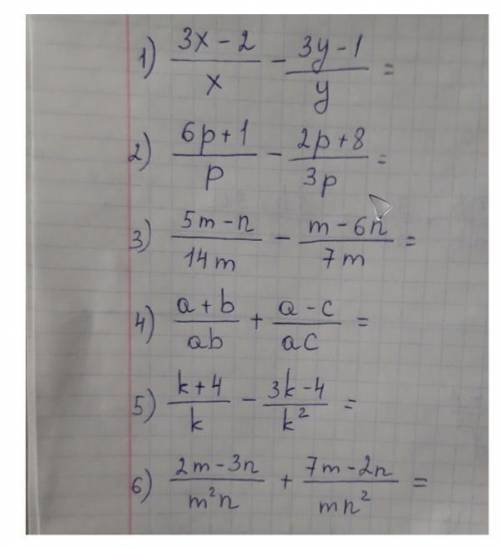 1) (3x - 2)/x - (3y - 1)/y =
2) (6p + 1)/p - (2p + 8)/3p =
3) (5m - n)/14m - (m - 6n)/7m =
4) (a + b)/ab + (a - c)/ac =
5) (k + 4)/k - (3k - 4)/k² =
6) (2m - 3n)/m²n + (7m - 2n)/mn² =